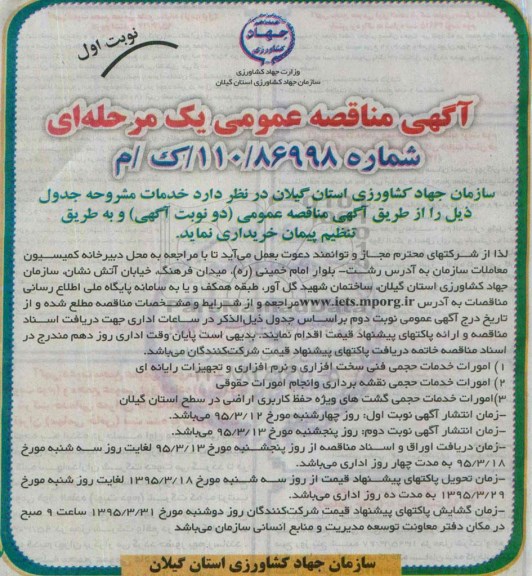 نوبت اول
جهاد
کشاورزی
وزارت جهاد کشاورزی
سازمان جهاد کشاورزی استان گیلان
آگهی مناقصه عمومی یک مرحله‌ای
شماره ۱۱۰/۸۶۹۹۸/ک /م
سازمان جهاد کشاورزی استان گیلان در نظر دارد خدمات مشروحه جدول
ذیل را از طریق آگهی مناقصه عمومی (دو نوبت آگهی) و به طریق
تنظیم پیمان خریداری نماید.
لذا از شرکتهای محترم مجاز و توانمند دعوت بعمل می‌آید تا با مراجعه به محل دبیرخانه کمیسیون
معاملات سازمان به آدرس رشت- بلوار امام خمینی (ره)، میدان فرهنگ، خیابان آتش نشان، سازمان
جهاد کشاورزی استان گیلان، ساختمان شهید گل آور، طبقه همکف و یا به سامانه پایگاه ملی اطلاع رسانی
مناقصات به آدرس www.iets.mporg.ir مراجعه و از شرایط و مشخصات مناقصه مطلع شده و از
تاریخ درج آگهی عمومی نوبت دوم براساس جدول ذیل‌الذکر در ساعات اداری جهت دریافت اسناد
مناقصه و ارائه پاکتهای پیشنهاد قیمت اقدام نمایند. بدیهی است پایان وقت اداری روز دهم مندرج در
اسناد مناقصه خاتمه دریافت پاکتهای پیشنهاد قیمت شرکت‌کنندگان می‌باشد.
۱) امورات خدمات حجمی فنی سخت افزاری و نرم افزاری و تجهیزات رایانه ای
۲) امورات خدمات حجمی نقشه برداری وانجام امورات حقوقی
۳)امورات خدمات حجمی گشت های ویژه حفظ کاربری اراضی در سطح استان گیلان
-زمان انتشار آگهی نوبت اول: روز چهارشنبه مورخ ۹۵/۳/۱۲ می‌باشد.
-زمان انتشار آگهی نوبت دوم: روز پنجشنبه مورخ ۹۵/۳/۱۳ می‌باشد.
-زمان دریافت اوراق و اسناد مناقصه از روز پنجشنبه مورخ ۹۵/۳/۱۳ لغایت روز سه شنبه مورخ
۹۵/۳/۱۸ به مدت چهار روز اداری می‌باشد.
-زمان تحویل پاکتهای پیشنهاد قیمت از روز سه شنبه مورخ ۱۳۹۵/۳/۱۸ لغایت روز شنبه مورخ
۱۳۹۵/۳/۲۹ به مدت ده روز اداری می‌باشد.
-زمان گشایش پاکتهای پیشنهاد قیمت شرکت‌کنندگان روز دوشنبه مورخ ۱۳۹۵/۳/۳۱ ساعت ۹ صبح
در مکان دفتر معاونت توسعه مدیریت و منابع انسانی سازمان می‌باشد
سازمان جهاد کشاورزی استان گیلان